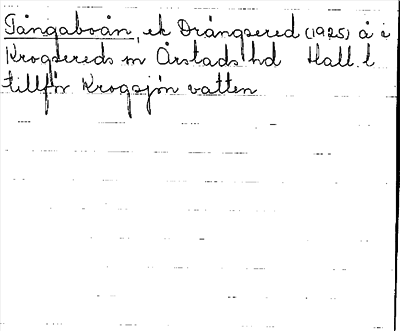 Tångaboån, ek Drängsered (1925) å i
Krogsereds sn Årstads hd Hall. l
tillför Krogsjön vatten